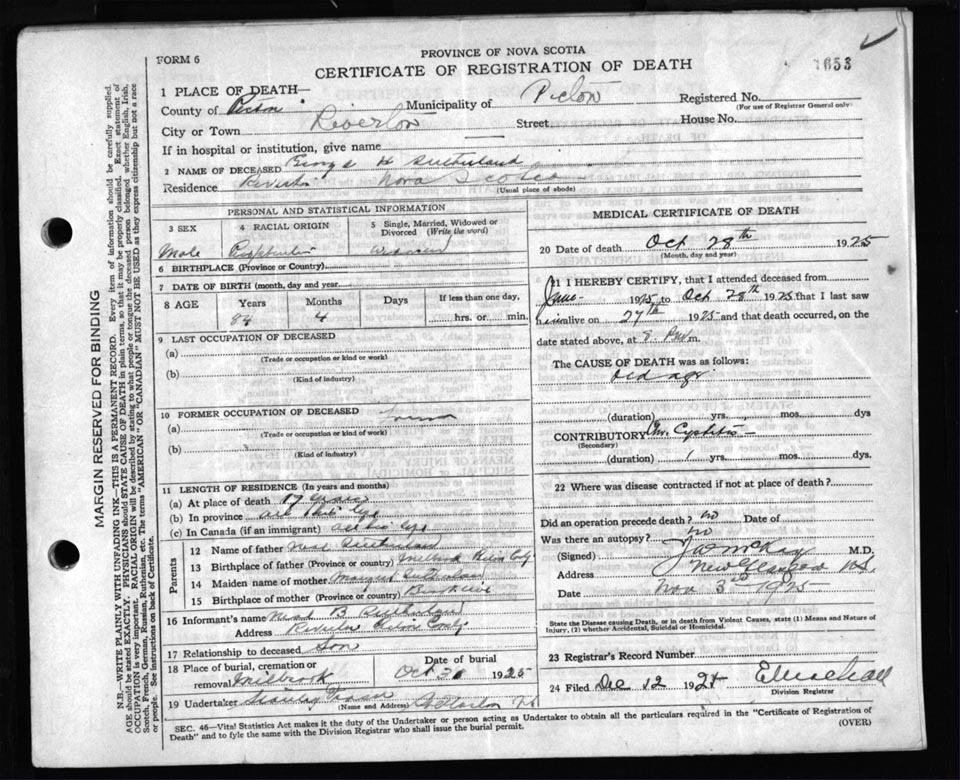 PROVINCE OF NOVA SCOTIA
FORM 6
CERTIFICATE OF REGISTRATION OF DEATH
1653
1 PLACE OF DEATH—
County of Pictou Municipality of Pictou Registered No.
(For use of Registrar General only)
City or Town Riverton Street House No.
If in hospital or institution, give name
2 NAME OF DECEASED George H Sutherland
Residence Riverton Nova Scotia
(Usual place of abode)
PERSONAL AND STATISTICAL INFORMATION
3 SEX 4 RACIAL ORIGIN 5 Single, Married, Widowed or Divorced (Write the word)
Male
6 BIRTHPLACE (Province or Country)
7 DATE OF BIRTH (month, day and year)
8 AGE Years Months Days If less than one day,
84 4 hrs. or min.
9 LAST OCCUPATION OF DECEASED
(a)
(Trade or occupation or kind or work)
(b)
(Kind of industry)
10 FORMER OCCUPATION OF DECEASED
(a)
(Trade or occupation or kind or work)
(b)
(Kind of industry)
11 LENGTH OF RESIDENCE (In years and months)
(a) At place of death 17 years
(b) In province all his life
(c) In Canada (if an immigrant) all his life
Parents
12 Name of father Neil Sutherland
13 Birthplace of father (Province or country)
14 Maiden name of mother Margaret Sutherland
15 Birthplace of mother (Province or country)
16 Informant's name B Sutherland
Address Riverton Pictou County
17 Relationship to deceased Son
18 Place of burial, cremation or removal Millbrook Date of burial Oct 1925
19 Undertaker
(Name and Address)
MEDICAL CERTIFICATE OF DEATH
20 Date of death Oct 28th 1925
(Month, day and year)
21 I HEREBY CERTIFY, that I attended deceased from
June 1925 to Oct 28th 1925 that I last saw
him alive on 27th 1925 and that death occurred, on the
date stated above, at 8 P.M. m.
The CAUSE OF DEATH was as follows:
Old age
(duration) yrs. mos. dys
CONTRIBUTORY Chr. Cystitis
(Secondary)
(duration) 1 yrs. mos. dys.
22 Where was disease contracted if not at place of death?
Did an operation precede death? no Date of
Was there an autopsy? no
(Signed) J W McKay M.D.
Address New Glasgow N.S.
Date Nov 3rd 1925
State the Disease causing Death, or in death from Violent Causes, state (1) Means and Nature of
Injury, (2) whether Accidental, Suicidal or Homicidal.
23 Registrar's Record Number
24 Filed Dec 12 192
Division Registrar
SEC. 46—Vital Statistics Act makes it the duty of the Undertaker or person acting as Undertaker to obtain all the particulars required in the "Certificate of Registration of
Death" and to fyle the same with the Division Registrar who shall issue the burial permit.
(OVER)
MARGIN RESERVED FOR BINDING
N.B.—WRITE PLAINLY WITH UNFADING INK—THIS IS A PERMANENT RECORD. Every item of information should be carefully supplied.
AGE should be stated EXACTLY. PHYSICIANS should STATE CAUSE OF DEATH in plain terms, so that it may be properly classified. Exact statement of
OCCUPATION is very important. RACIAL ORIGIN will be described by stating to what people or tongue the deceased person belonged whether English, Irish,
Scotch, French, German, Russian, Ruthenian, etc. The terms "AMERICAN" OR "CANADIAN" MUST NOT BE USED as they express citizenship but not a race
or people. See instructions on back of Certificate.